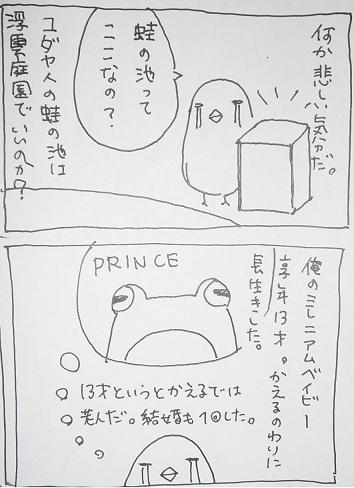 何か悲しい気分だ。
蛙の池って
ここなの?
ユダヤ人の蛙の池は
浮雲庭園でいいのか?
俺のミレニアムベイビー
享年13才。かえるのわりに
長生きした。
PRINCE
13才というとかえるでは
老人だ。結婚も1回した。